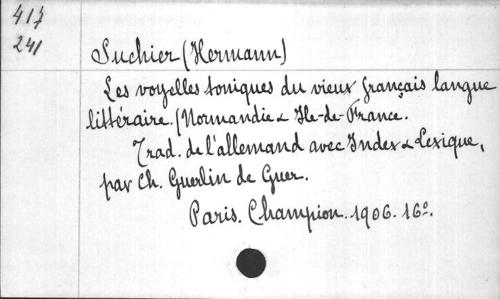 417
241
Suchier (Hermann)
Les voyelles toniques du vieux français langue
littéraire. (Normandie & Ile-de-France.
Trad. de l'allemand avec Index & Lexique,
par Ch. Guerlin de Guer.
Paris. Champion. 1906. 16º.